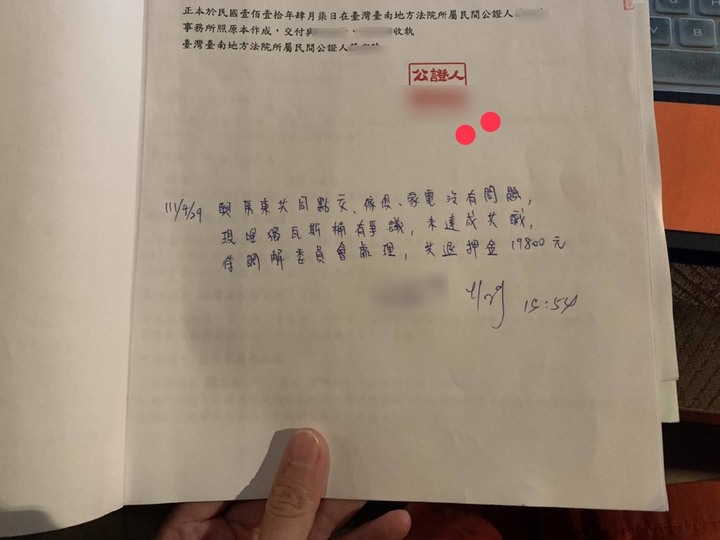 正本於民國壹佰壹拾年肆月柒日在臺灣臺南地方法院所屬民間公證人
事務所照原本作成,交付與 收執
臺灣臺南地方法院所屬民間公證人
公證人
111/4/29 與房東共同點交、傢俱、家電沒有問題,
現唯獨瓦斯桶有爭議,未達成共識,
待調解委員會處理,共退押金 19800元
4/29 15:54